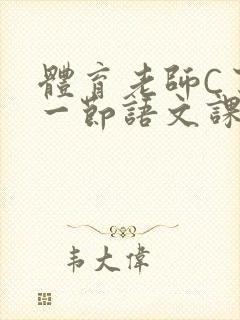 體育老師C
一節語文課
韦大偉